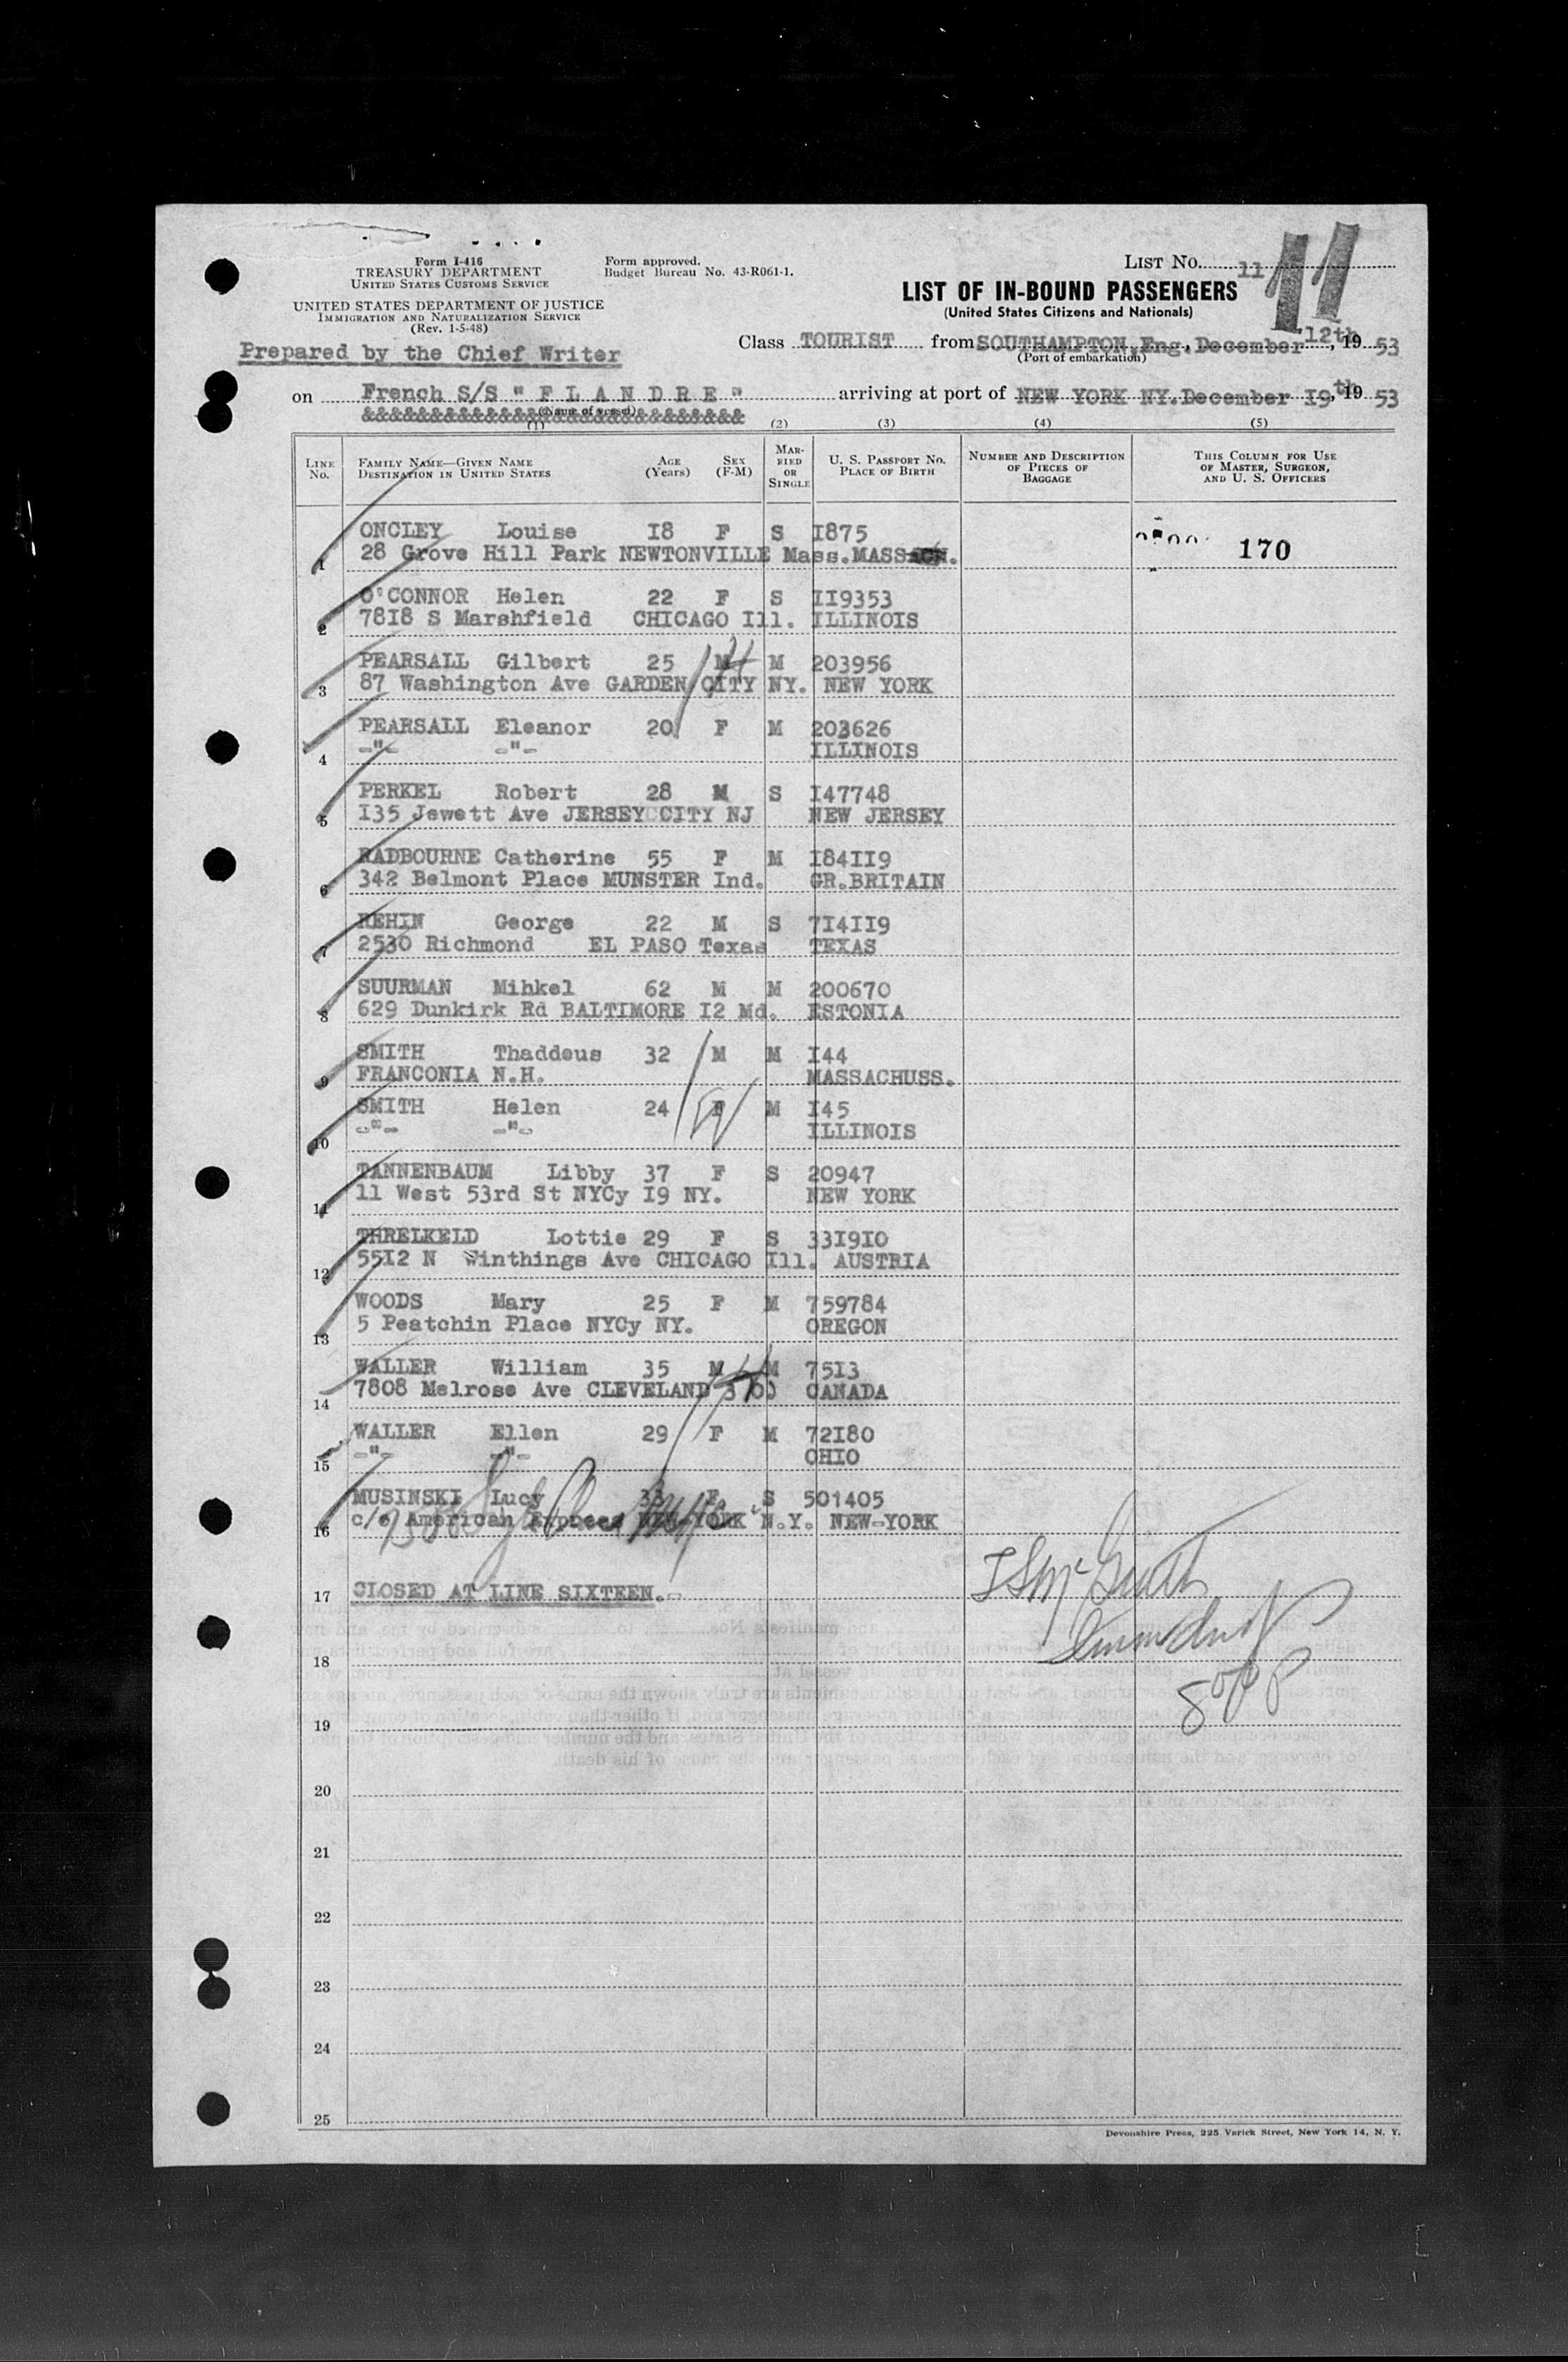 Form I-416
TREASURY DEPARTMENT
UNITED STATES CUSTOMS SERVICE
UNITED STATES DEPARTMENT OF JUSTICE
IMMIGRATION AND NATURALIZATION SERVICE
(Rev. 1-5-48)
Form approved.
Budget Bureau No. 43-R061-1.
LIST NO. 11
11
LIST OF IN-BOUND PASSENGERS
(United States Citizens and Nationals)
Prepared by the Chief Writer
Class TOURIST from SOUTHAMPTON,Eng., December 12th, 19 53
(Port of embarkation)
on French S/S " F L A N D R E " arriving at port of NEW YORK NY. December I9th, 19 53
&&&&&&&&&&&&&&&&&&&&&&&&&&&&
(Name of vessel)
(1) (2) (3) (4) (5)
LINE No. FAMILY NAME—GIVEN NAME DESTINATION IN UNITED STATES AGE (Years) SEX (F-M) MARRIED OR SINGLE U. S. PASSPORT NO. PLACE OF BIRTH NUMBER AND DESCRIPTION OF PIECES OF BAGGAGE THIS COLUMN FOR USE OF MASTER, SURGEON, AND U. S. OFFICERS
ONCLEY Louise I8 F S I875
1 28 Grove Hill Park NEWTONVILLE Mass. MASSACH. 170
O'CONNOR Helen 22 F S II9353
2 78I8 S Marshfield CHICAGO Ill. ILLINOIS
PEARSALL Gilbert 25 M M 203956
3 87 Washington Ave GARDEN CITY NY. NEW YORK
PEARSALL Eleanor 20 F M 203626
4 -"- -"- ILLINOIS
PERKEL Robert 28 M S I47748
5 I35 Jewett Ave JERSEY CITY NJ NEW JERSEY
RADBOURNE Catherine 55 F M I84II9
6 342 Belmont Place MUNSTER Ind. GR.BRITAIN
REHIN George 22 M S 7I4II9
7 2530 Richmond EL PASO Texas TEXAS
SUURMAN Mihkel 62 M M 200670
8 629 Dunkirk Rd BALTIMORE I2 Md. ESTONIA
SMITH Thaddeus 32 M M I44
9 FRANCONIA N.H. MASSACHUSS.
SMITH Helen 24 F M I45
10 -"- -"- ILLINOIS
TANNENBAUM Libby 37 F S 20947
11 11 West 53rd St NYCy I9 NY. NEW YORK
THRELKELD Lottie 29 F S 33I9I0
12 55I2 N Winthings Ave CHICAGO Ill. AUSTRIA
WOODS Mary 25 F M 759784
13 5 Peatchin Place NYCy NY. OREGON
WALLER William 35 M M 75I3
14 7808 Melrose Ave CLEVELAND 3 CANADA
WALLER Ellen 29 F M 72I80
15 -"- -"- OHIO
MUSINSKI Lucy 33 F S 501405
16 c/o American Express NEW-YORK N.Y. NEW-YORK
17 CLOSED AT LINE SIXTEEN.-
18
19
20
21
22
23
24
25
Devonshire Press, 225 Varick Street, New York 14, N. Y.